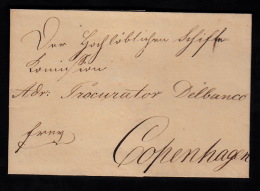 Der Hochlöblichen Schiffs
Komission
Adr: Procurator Delbanco
frey
Copenhagen